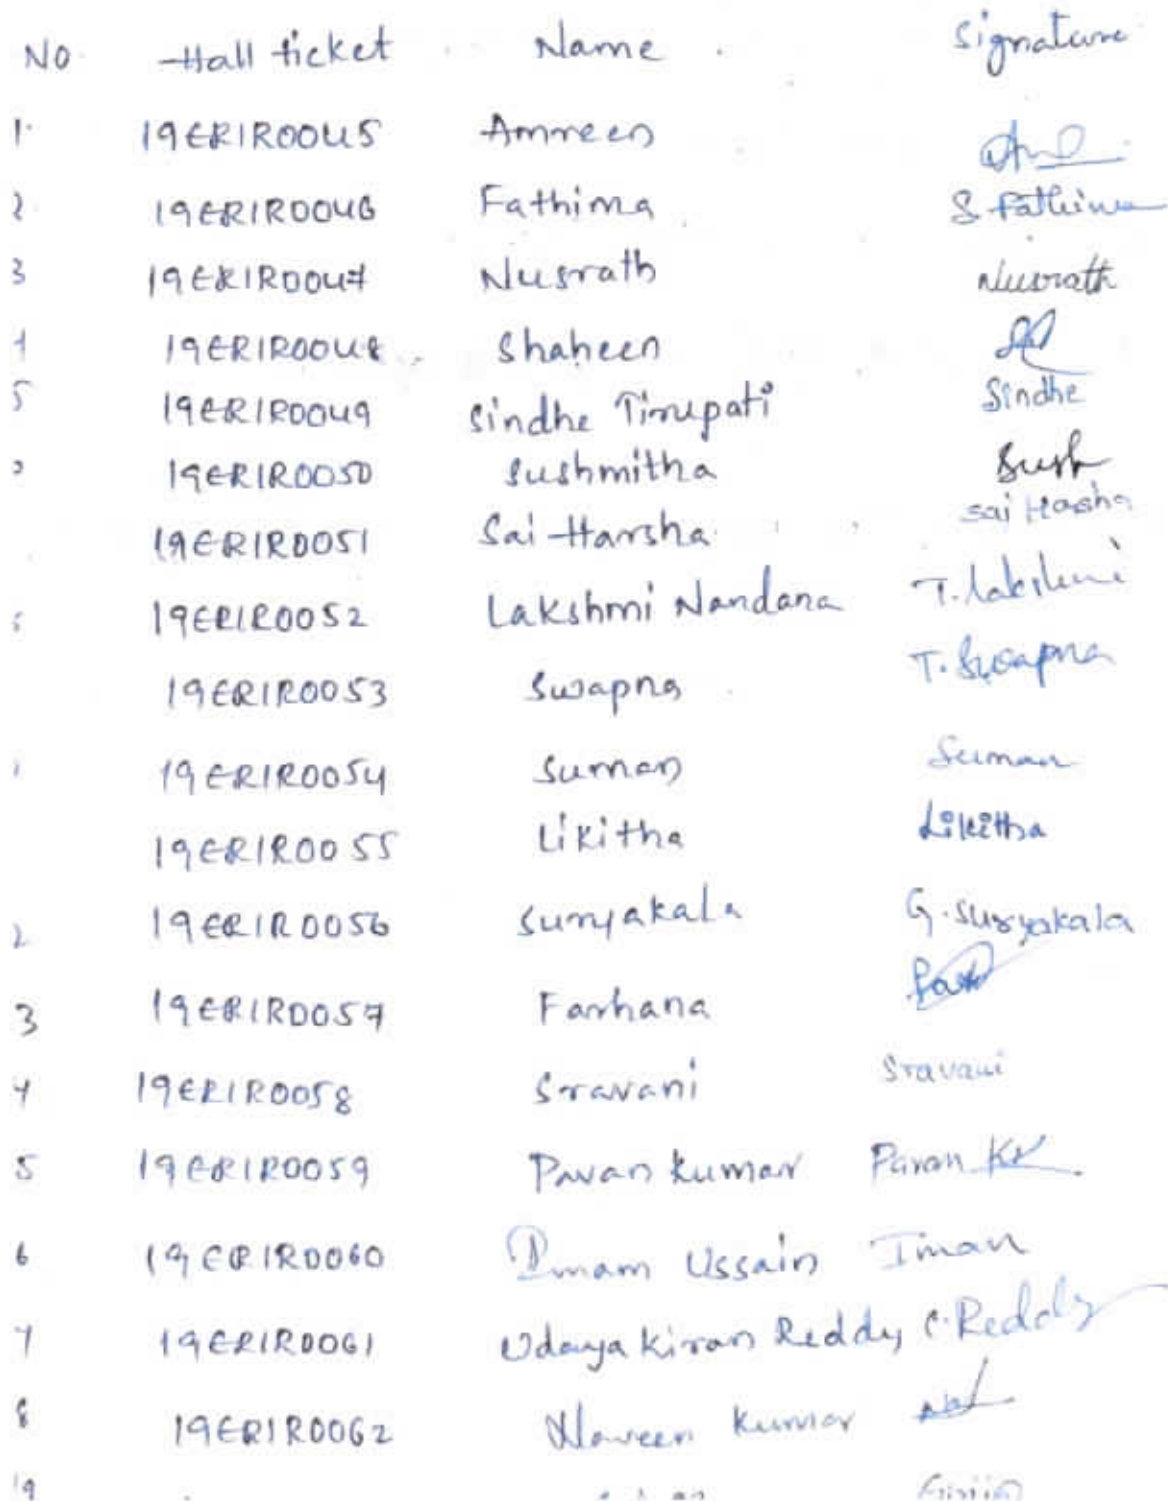 NO Hall ticket Name Signature
1. 19ERIR0045 Amreen
2. 19ERIR0046 Fathima S. Fathima
3 19ERIR0047 Nusrath Nusrath
4 19ERIR0048 Shaheen
5 19ERIR0049 Sindhe Tirupati Sindhe
19ERIR0050 Sushmitha Sush
19ERIR0051 Sai Harsha Sai Harsha
19ERIR0052 Lakshmi Nandana T. Lakshmi
19ERIR0053 Swapna T. Swapna
19ERIR0054 Suman Suman
19ERIR0055 Likitha Likitha
2 19ERIR0056 Suryakala G. Suryakala
3 19ERIR0057 Farhana
4 19ERIR0058 Sravani Sravani
5 19ERIR0059 Pavan Kumar Pavan Kr
6 19ERIR0060 Imam Ussain Imam
7 19ERIR0061 Udaya Kiran Reddy C. Reddy
8 19ERIR0062 Naveen Kumar
19